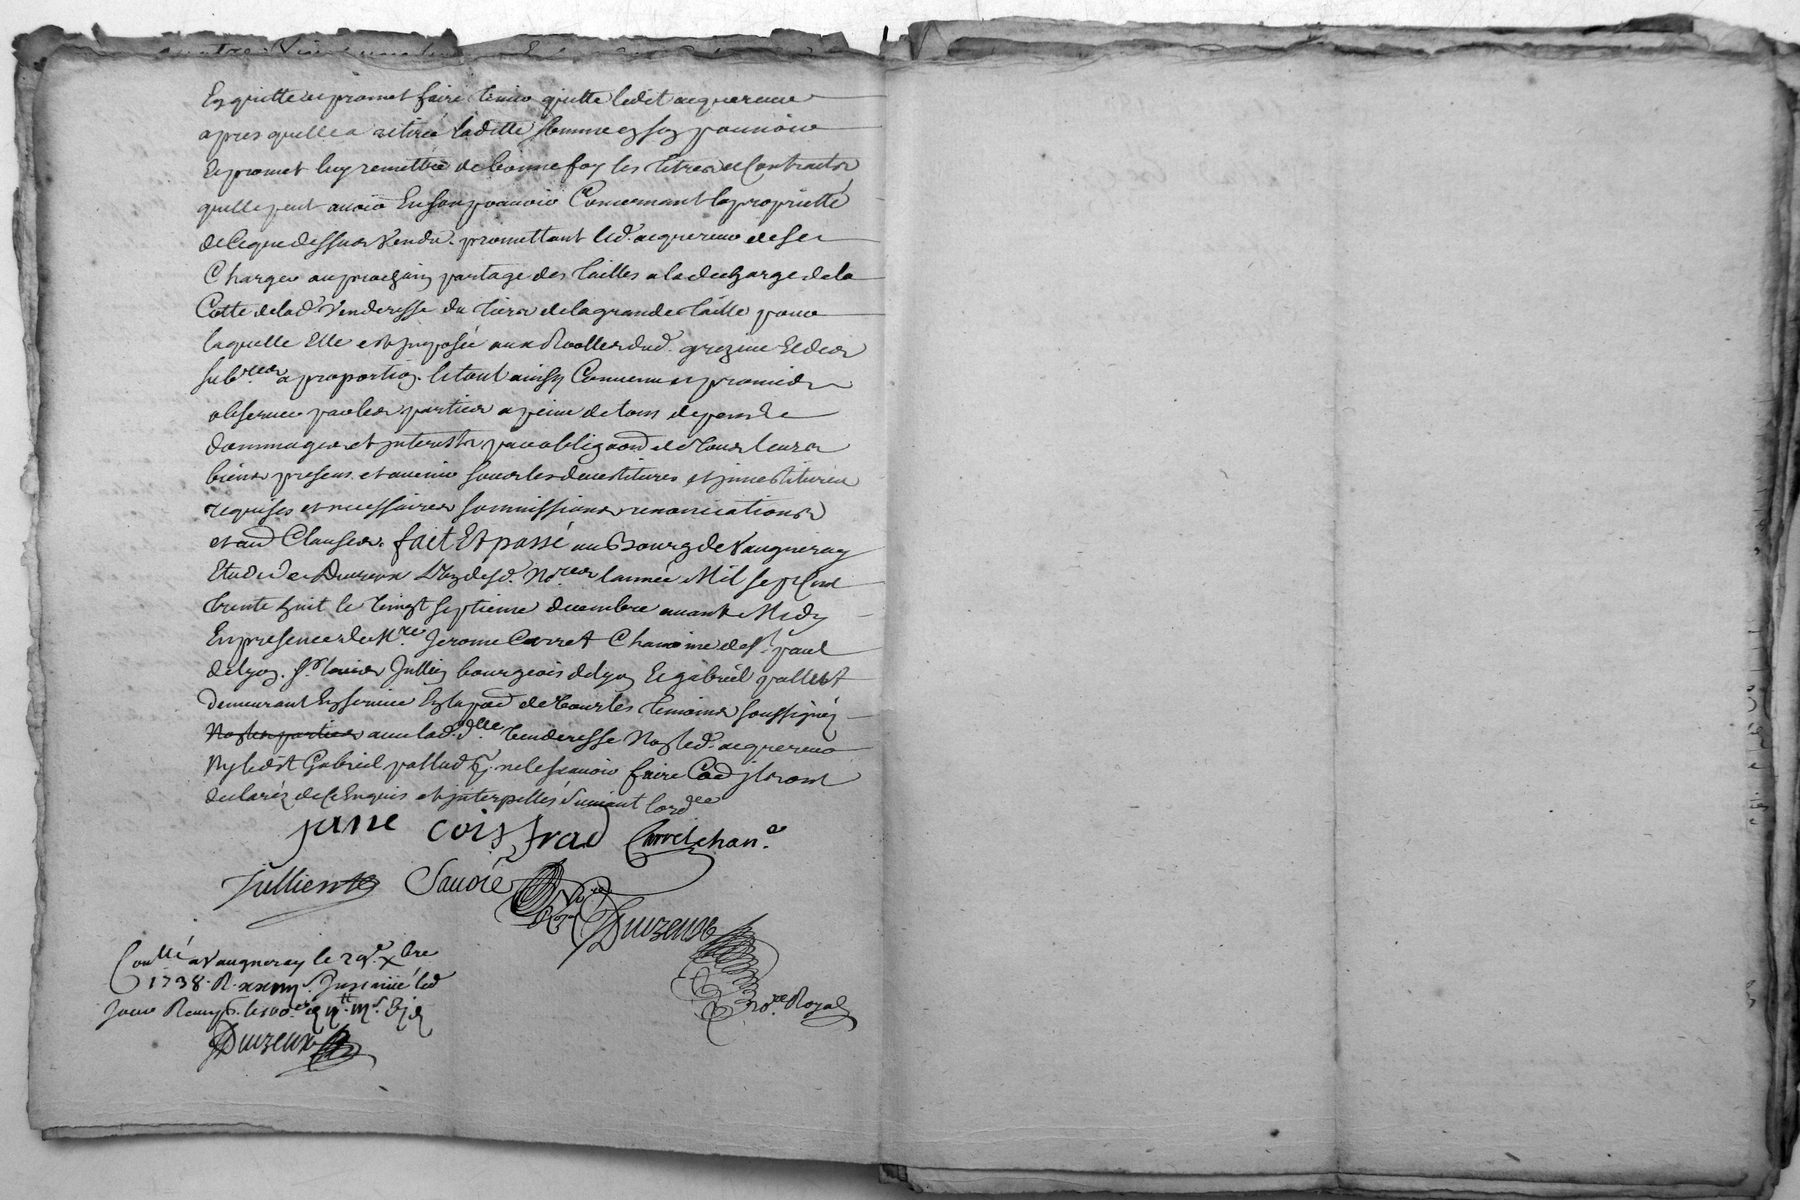 En quitte et promet faire tenir quitte ledit acquereur
apres quelle a retiré laditte somme en son pouvoir
Et promet luy remettre de bonne foy les titres et Contracts
quelle peut avoir En son pouvoir Concernant la proprietté
de ce que dessus Vendu. promettant led. acquereur de se
Charger au prochain partage des tailles a la decharge de la
Cotte de lad. Venderesse du tiers de la grande taille pour
laquelle Elle est imposée aux Roolles dud. grezieu Et des
a proportion. le tout ainsy Convenu et promis
observer par les parties a peine de tous depens
dommages et interests par obliga͠on de tous leurs
biens presens et avenir sous les devestitures et investitures
requises et necessaires soumissions renonciations
et au͠ Clauses. fait Et passé au Bourg de Vaugneray
Etude de Duizeux L'un desd. No.res l'année Mil sept Cent
trente huit le vingt septieme decembre avant Midy
En presence de M.re Jerome Carret Chanoine de S.t paul
de lyon. S.r louis Jullien bourgeois de lyon Et gabriel pallud
demeurant En service tous les temoins soussignéz
Non les parties avec lad. d.lle Venderesse Non led. acquereur
Ny ledit Gabriel pallud p͠r. ne le scavoir faire Co͠e ils ont
declaréz de Ce Enquis et interpellés suivant l'ord.ce
jane coissrad Carret chan.e
Jullien Savoie
No.re Duizeux
No.re Royal
Con.llé a Vaugneray le 29.e Xbre
1738. R. Insinué led.
jour
Duizeux